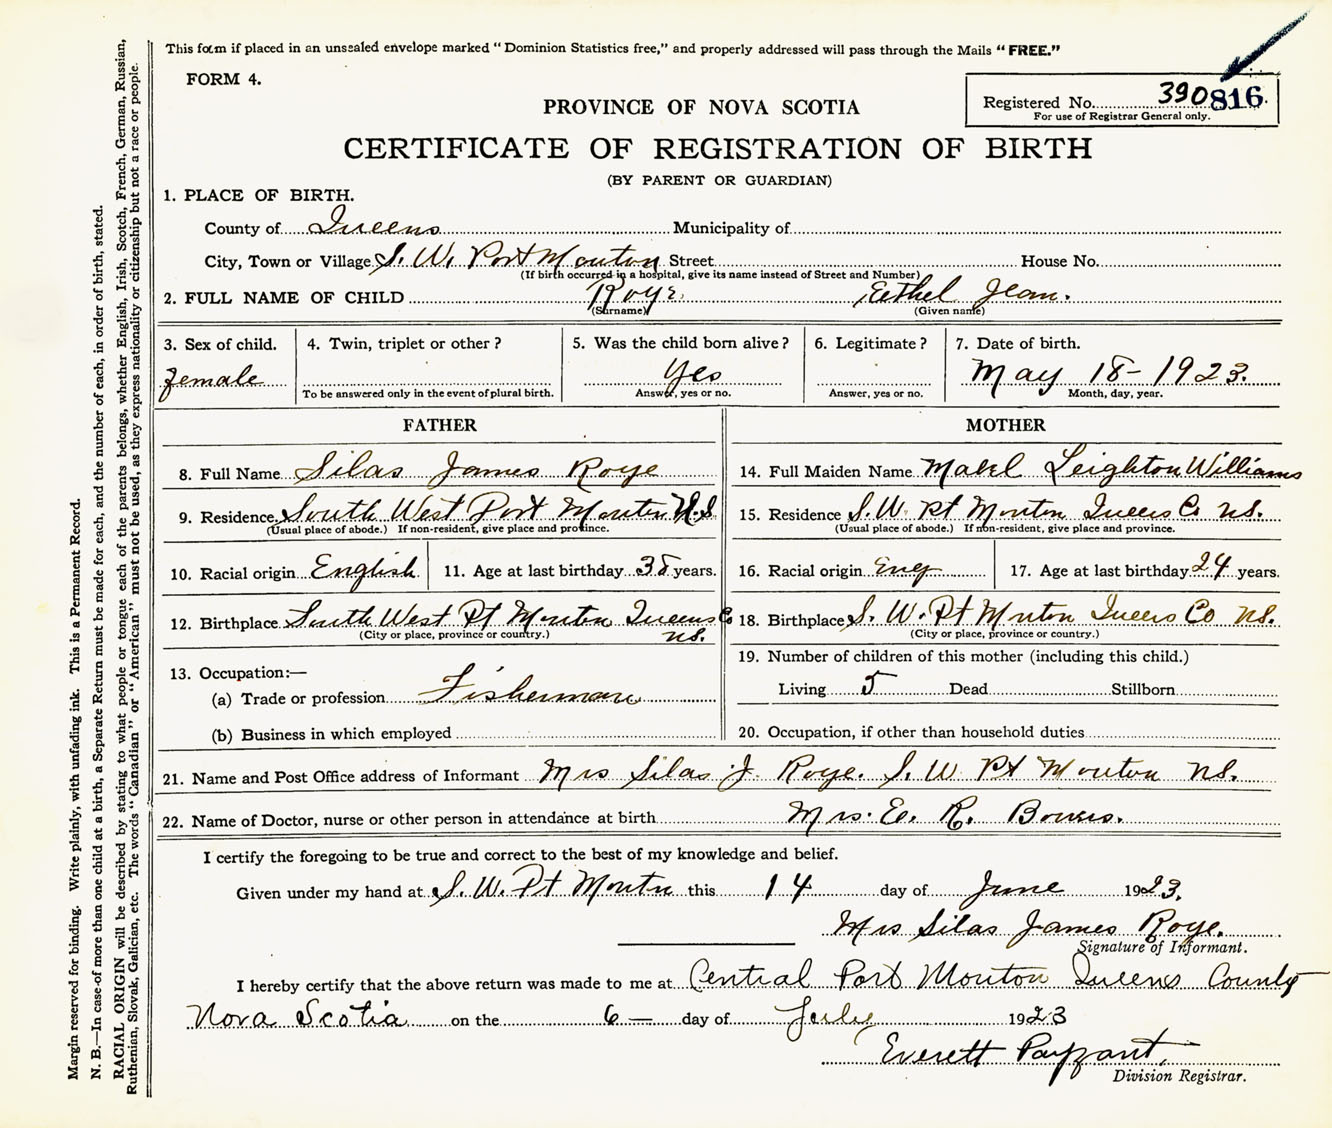 This form if placed in an unsealed envelope marked "Dominion Statistics free," and properly addressed will pass through the Mails "FREE."
FORM 4.
Registered No. 390816
For use of Registrar General only.
PROVINCE OF NOVA SCOTIA
CERTIFICATE OF REGISTRATION OF BIRTH
(BY PARENT OR GUARDIAN)
1. PLACE OF BIRTH.
County of Queens Municipality of
City, Town or Village S. W. Port Mouton Street House No.
(If birth occurred in a hospital, give its name instead of Street and Number)
2. FULL NAME OF CHILD Roye Eethel Jean.
(Surname) (Given name)
3. Sex of child. 4. Twin, triplet or other? 5. Was the child born alive? 6. Legitimate? 7. Date of birth.
Female Yes May 18- 1923.
To be answered only in the event of plural birth. Answer, yes or no. Answer, yes or no. Month, day, year.
FATHER MOTHER
8. Full Name Silas James Roye 14. Full Maiden Name Mabel Leighton Williams
9. Residence South West Port Mouton N.S 15. Residence S. W. Pt Mouton Queens Co NS.
(Usual place of abode.) If non-resident, give place and province. (Usual place of abode.) If non-resident, give place and province.
10. Racial origin English 11. Age at last birthday 38 years. 16. Racial origin Eng 17. Age at last birthday 24 years.
12. Birthplace South West Pt Mouton Queens Co NS. 18. Birthplace S. W. Pt Mouton Queens Co NS.
(City or place, province or country.) (City or place, province or country.)
13. Occupation:— 19. Number of children of this mother (including this child.)
(a) Trade or profession Fisherman Living 5 Dead Stillborn
(b) Business in which employed 20. Occupation, if other than household duties
21. Name and Post Office address of Informant Mrs Silas J. Roye. S. W Pt Mouton NS.
22. Name of Doctor, nurse or other person in attendance at birth Mrs. E. R. Bowers.
I certify the foregoing to be true and correct to the best of my knowledge and belief.
Given under my hand at S. W. Pt Mouton this 14 day of June 1923.
Mrs Silas James Roye.
Signature of Informant.
I hereby certify that the above return was made to me at Central Port Mouton Queens County
Nova Scotia on the 6— day of July 1923
Everett Payzant.
Division Registrar.
Margin reserved for binding. Write plainly, with unfading ink. This is a Permanent Record.
N. B.—In case of more than one child at a birth, a Separate Return must be made for each, and the number of each, in order of birth, stated.
RACIAL ORIGIN will be described by stating to what people or tongue each of the parents belongs, whether English, Irish, Scotch, French, German, Russian,
Ruthenian, Slovak, Galician, etc. The words "Canadian" or "American" must not be used, as they express nationality or citizenship but not a race or people.